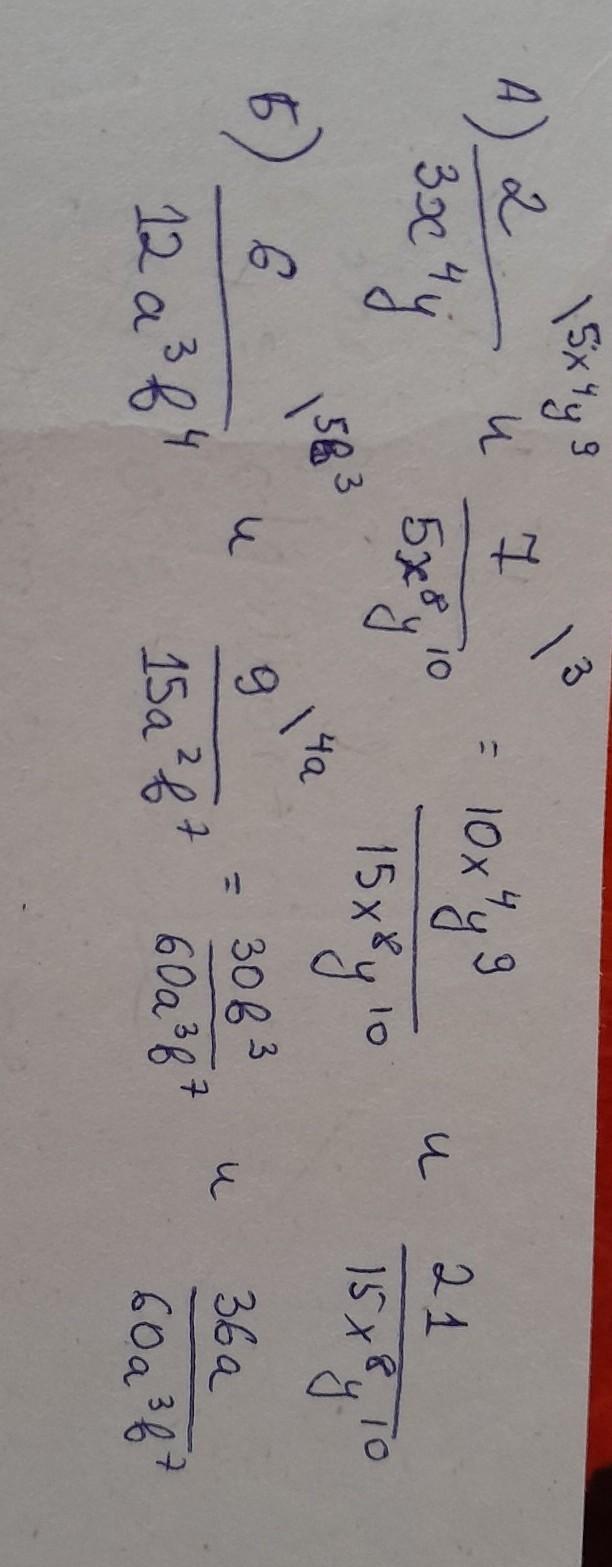 А) 2/(3x⁴y) \5x⁴y⁹ и 7/(5x⁸y¹⁰) \3 = 10x⁴y⁹/(15x⁸y¹⁰) и 21/(15x⁸y¹⁰)
Б) 6/(12a³b⁴) \5b³ и 9/(15a²b⁷) \4a = 30b³/(60a³b⁷) и 36a/(60a³b⁷)